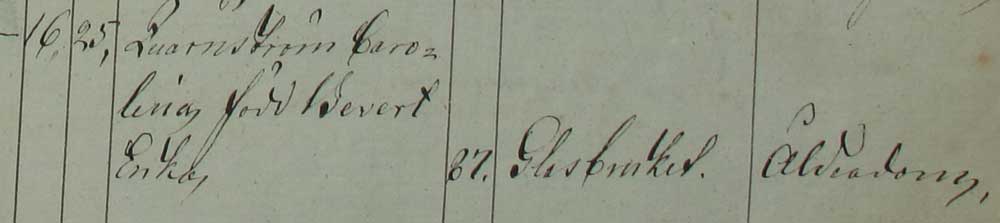 16, 25, Quarnström Caro-
lina, född Wevert
Enka, 87. Glasbruket. Ålderdom,